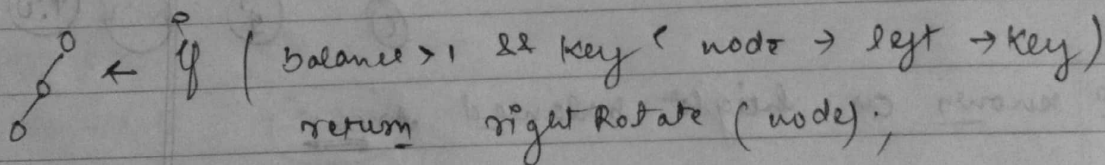 ← if ( balance > 1 && key < node → left → key)
return rightRotate (node);